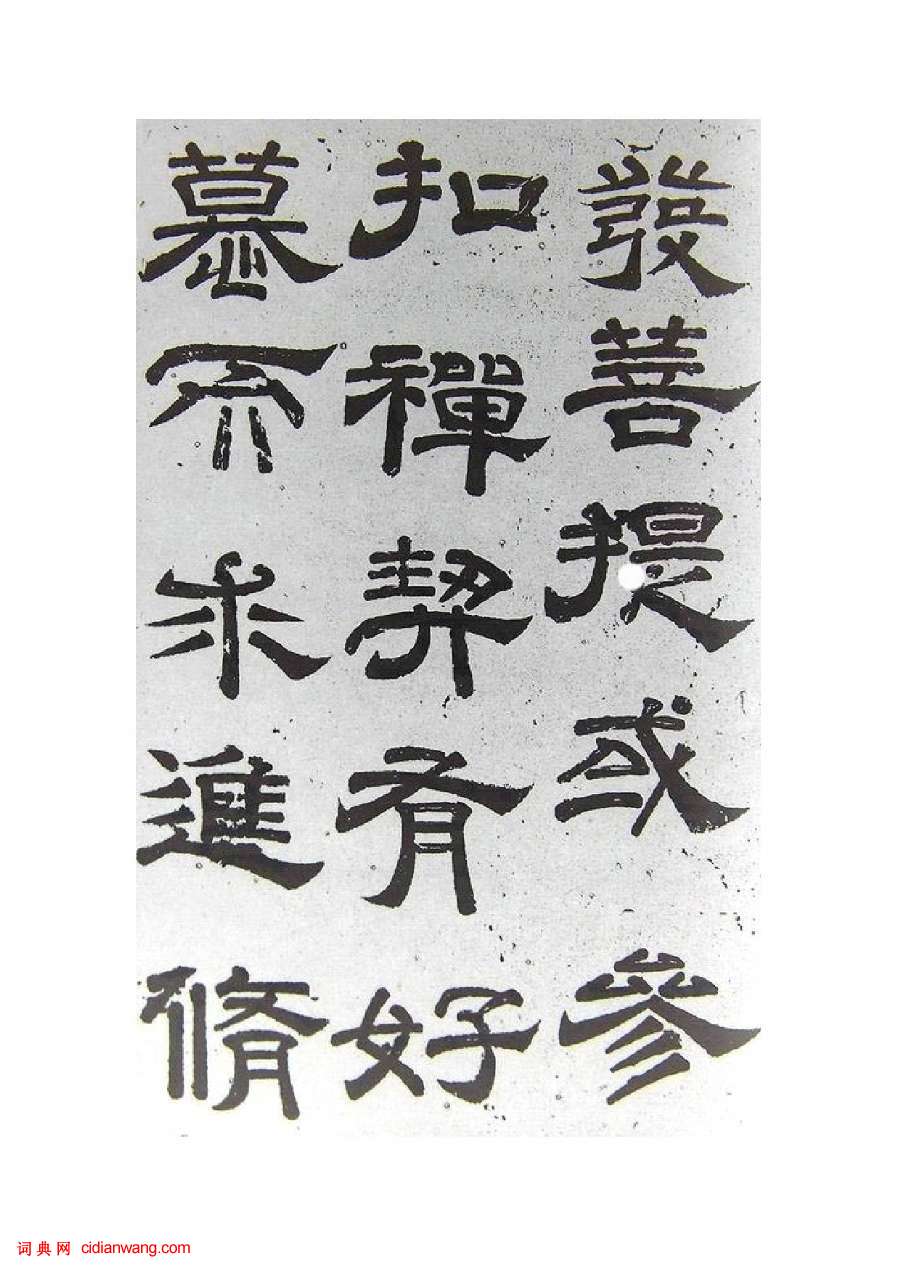 發菩提或參
扣禪契有好
慕而求進脩
词典网 cidianwang.com